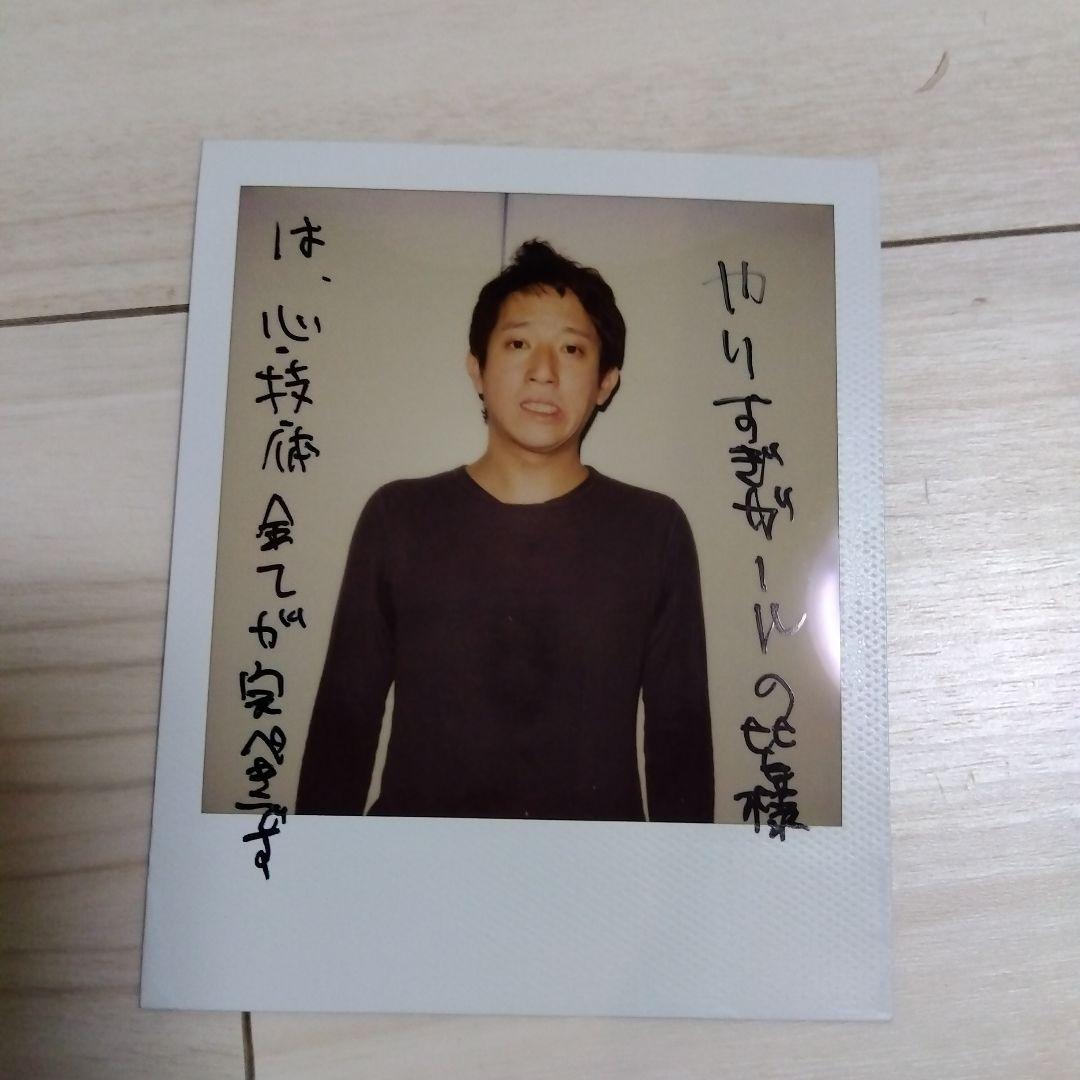 やりすぎガールの皆様
は、心・技術全てが完ぺきです